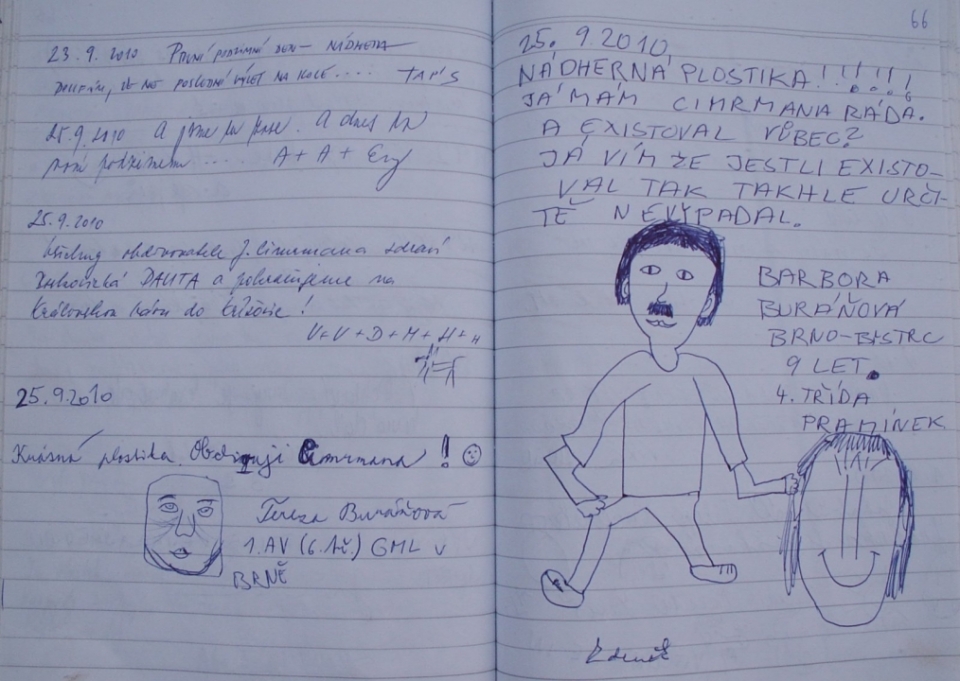 23.9.2010 PRVNÍ PODZIMNÍ DEN - NÁDHERA
DOUFÁM, ŽE NE POSLEDNÍ VÝLET NA KOLE.... TAP'S
25.9.2010 A jsme tu zase. A dnes
první podzimní.... A + A +
25.9.2010
Všechny obdivovatele J. Cimrmana zdraví
PARTA a pokračujeme na
Královskou horu do !
V+V+D+M+H+H
25.9.2010
Krásná plostika. Obdivuji Cimrmana !
Tereza Buráňová
1.AV (6.tř.) GML v
BRNĚ
66
25. 9.2010
NÁDHERNÁ PLOSTIKA!!!!!
JÁ MÁM CIMRMANA RÁDA.
A EXISTOVAL VŮBEC?
JÁ VÍM ŽE JESTLI EXISTO-
VAL TAK TAKHLE URČI-
TĚ NEVYPADAL.
BARBORA
BURÁŇOVÁ
BRNO-BYSTRC
9 LET.
4. TŘÍDA
PRAMÍNEK
Zdeněk